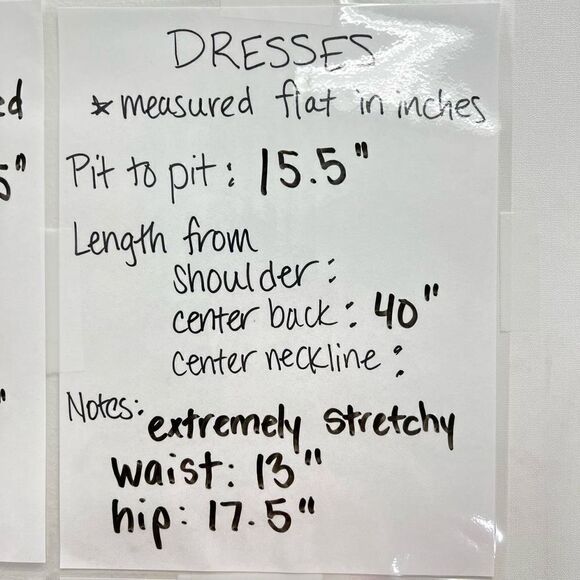 DRESSES
* measured flat in inches
Pit to pit: 15.5"
Length from
shoulder:
center back: 40"
center neckline:
Notes: extremely stretchy
waist: 13"
hip: 17.5"